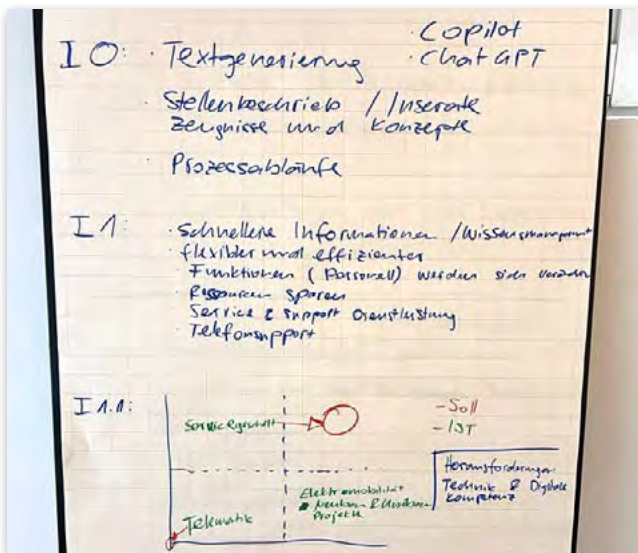 · Copilot
I 0: · Textgenerierung · Chat GPT
· Stellenbeschrieb / Inserate
Zeugnisse und Konzepte
· Prozessabläufe
I 1: · schnellere Informationen / Wissensmanagement
· flexibler und effizienter
· Funktionen (Personell) werden sich verändern
· Ressourcen sparen
· Service & Support Dienstleistung
· Telefonsupport
I 1.1:
Servicegeschäft
- Soll
- IST
Herausforderungen
Technik & Digitale
Kompetenz
Elektromobilität
Neubau & Umbau
Projekte
Telematik